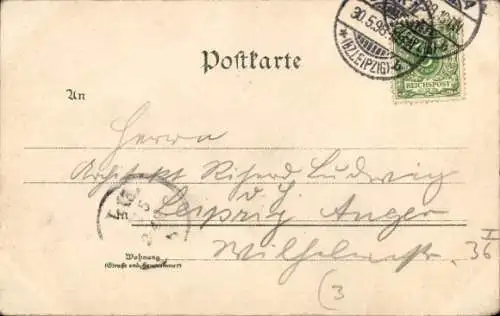 30.5.98
*(R2)LEIPZIG)*b
Postkarte
5
REICHSPOST
An
Herrn
Architekt Richard Ludwig
Leipzig Anger
Wilhelmstr. 36 I
Wohnung
(Straße und Hausnummer)
(3